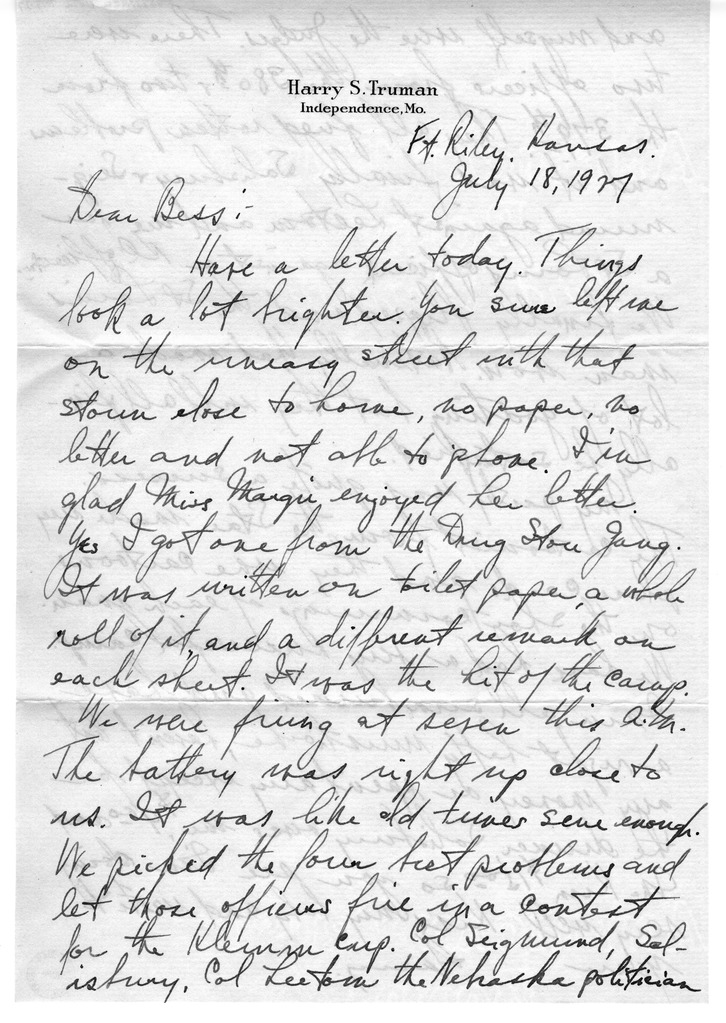 Harry S. Truman
Independence, Mo.
Ft. Riley, Kansas.
July 18, 1927
Dear Bess:-
Have a letter today. Things
look a lot brighter. You sure left me
on the uneasy street with that
storm close to home, no paper, no
letter and not able to phone. I'm
glad Miss Margie enjoyed her letter.
Yes I got one from the Drug Store Gang.
It was written on toilet paper, a whole
roll of it, and a different remark on
each sheet. It was the hit of the camp.
We were firing at seven this A.M.
The battery was right up close to
us. It was like old times sure enough.
We picked the four best problems and
let those officers fire in a contest
for the Klemm cup. Col Seigmund, Sal-
isbury, Col the Nebraska politician